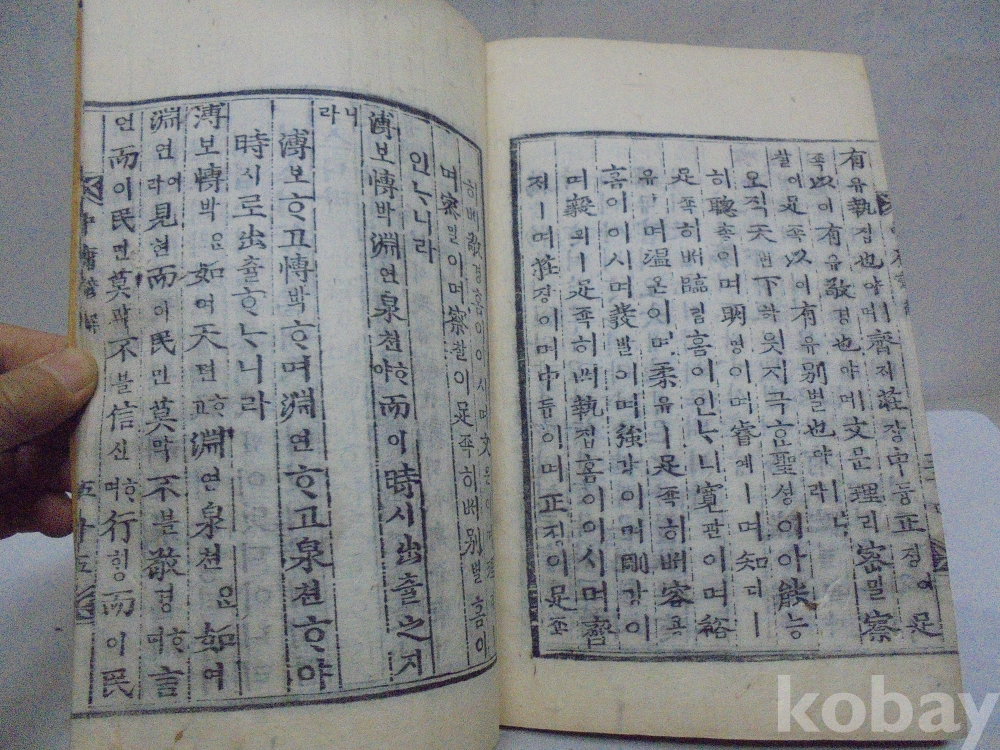 有유執집也야ㅣ며齊ᄌᆡ莊장中듕正졍이足
족以이有유敬경也야ㅣ며文문理리密밀察
찰이足족以이有유別별也야ㅣ니라
오직天텬下하읫지극ᄒᆞᆫ聖셩이아能능
히聰총이며明명이며睿예ㅣ며知디ㅣ
足족히ᄡᅥ臨림홈이인ᄂᆞ니寬관이며裕
유ㅣ며溫온이며柔유ㅣ足족히ᄡᅥ容용
홈이이시며發발이며強강이며剛강이
며毅의ㅣ足족히ᄡᅥ執집홈이이시며齊
ᄌᆡㅣ며莊장이며中듕이며正졍이足족
히ᄡᅥ敬경홈이이시며文문이
며密밀이며察찰이足족히ᄡᅥ別별홈이
인ᄂᆞ니라
溥보博박淵연泉쳔ᄒᆞ야而이時시出츌之지
니라
溥보ᄒᆞ고博박ᄒᆞ며淵연ᄒᆞ고泉쳔ᄒᆞ야
時시로出츌ᄒᆞᄂᆞ니라
溥보博박은如여天텬ᄒᆞ고淵연泉쳔은如여
淵연여라見현而이民민莫막不블敬경ᄒᆞ며言
언而이民민莫막不블信신ᄒᆞ며行ᄒᆡᆼ而이民
中庸諺解
五十五
kobay